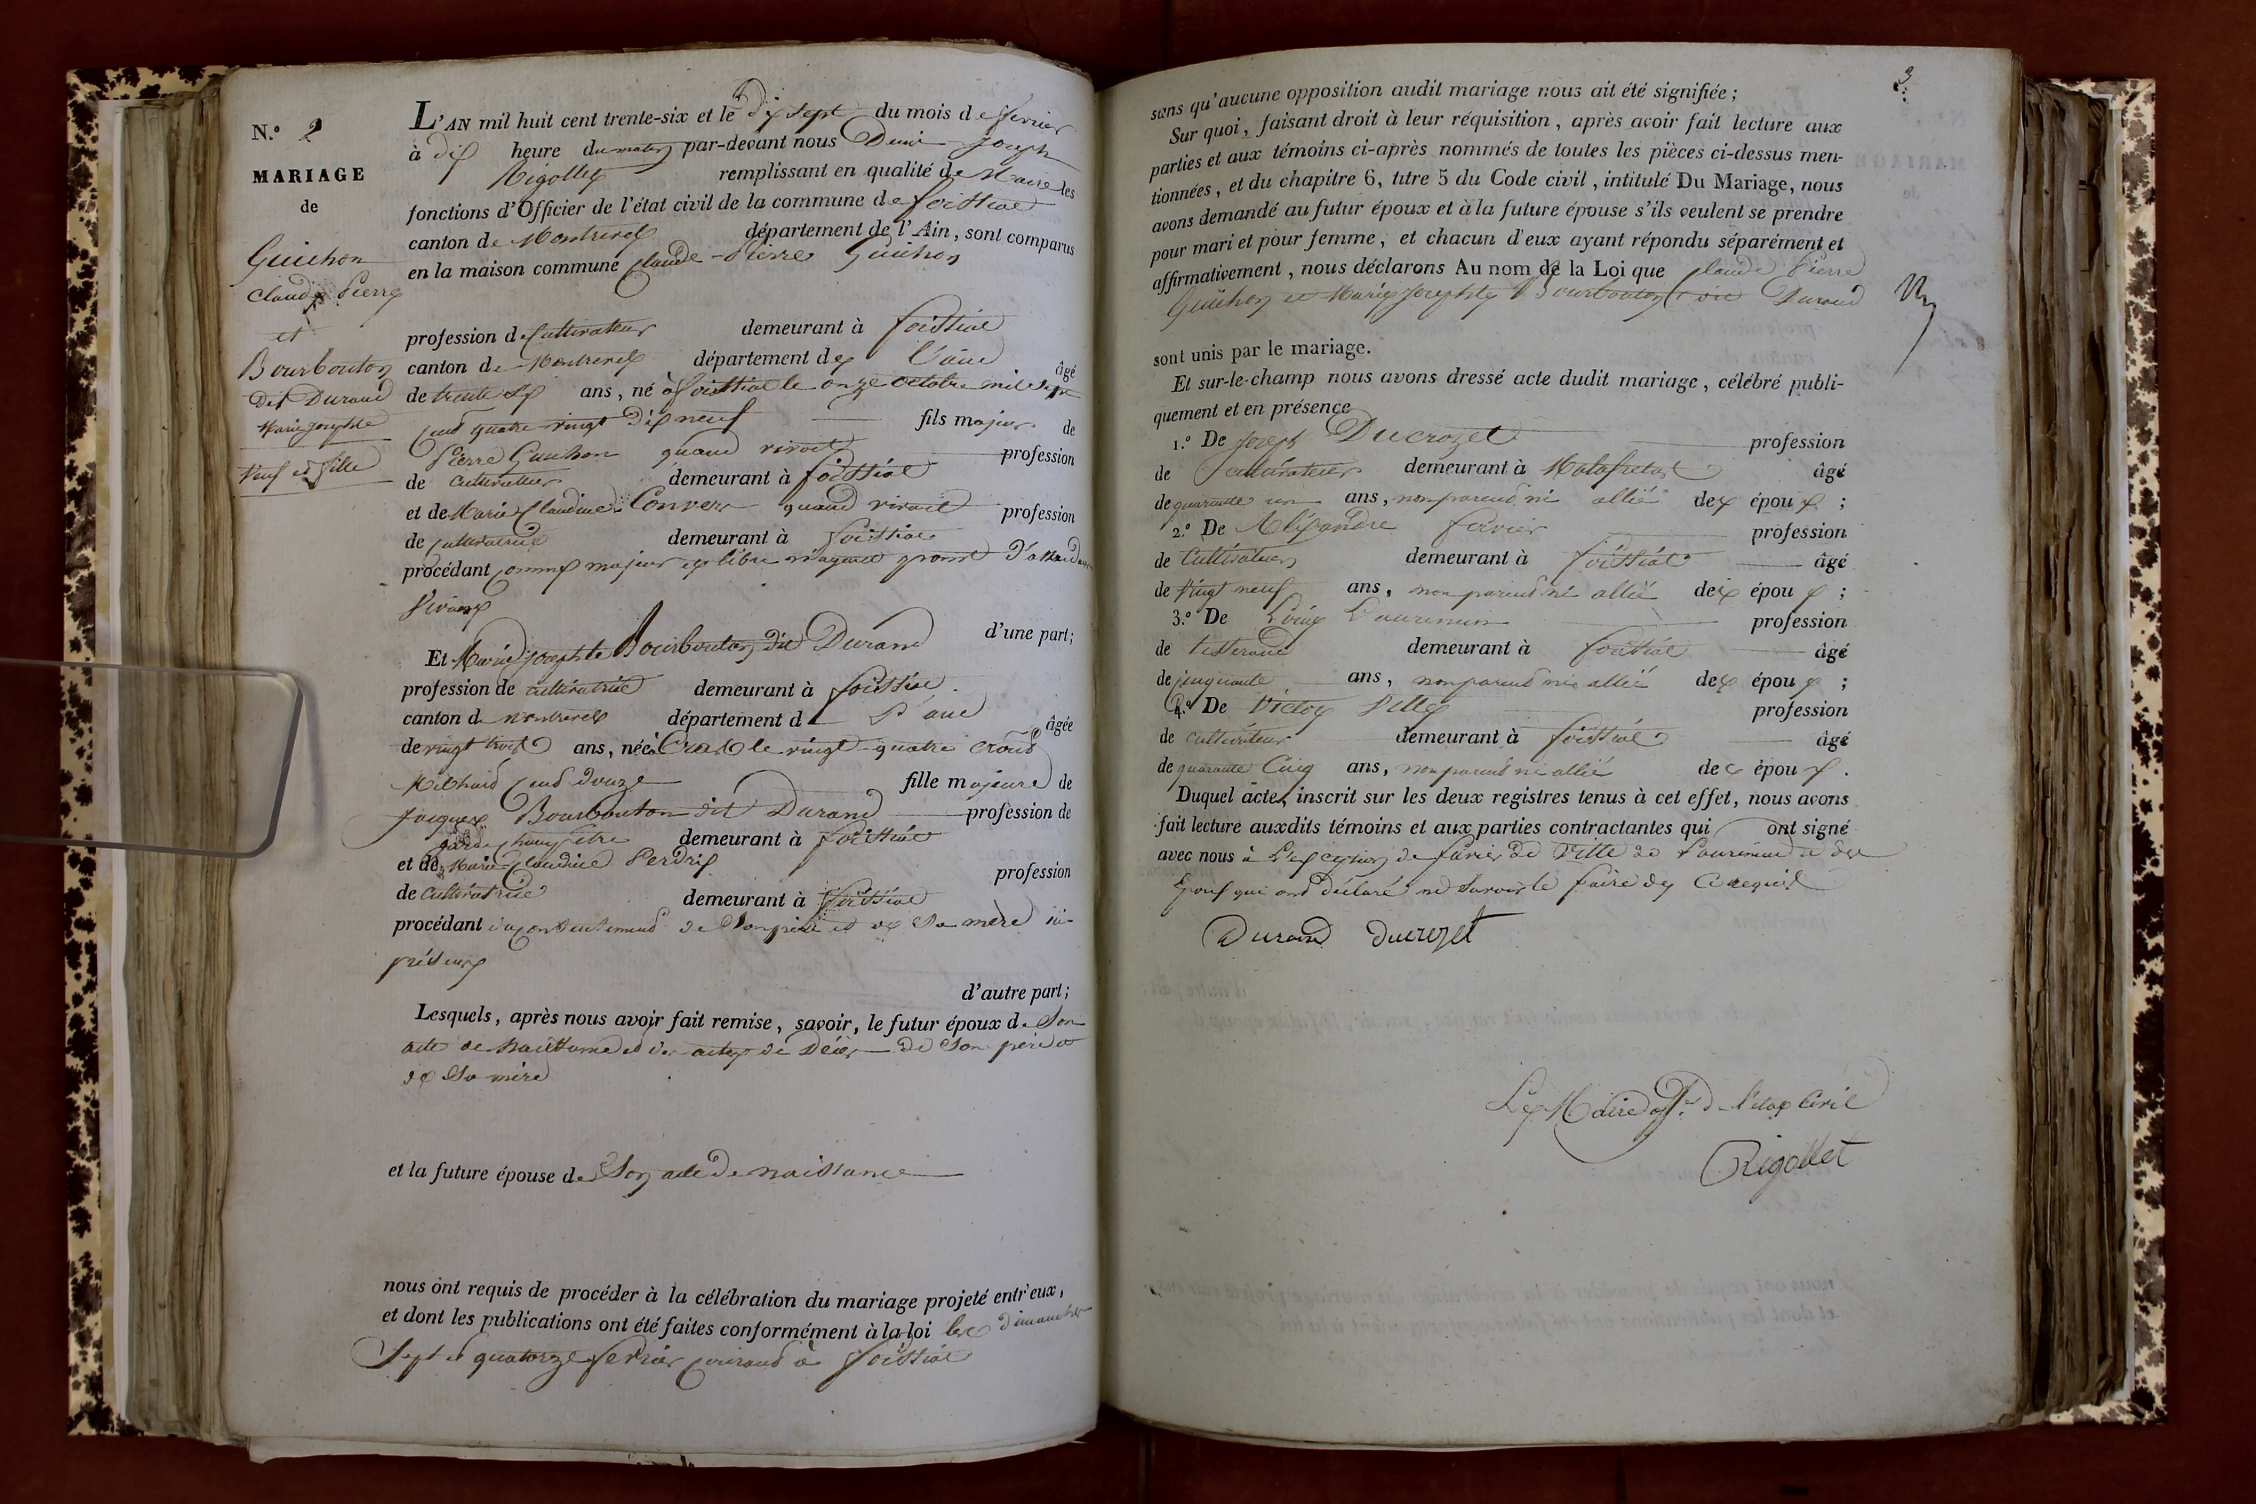 N.º 2
MARIAGE
de
Guichon
Claude Pierre
et
Bourbouton
dit Durand
Marie Josephte
Veuf et fille
L'AN mil huit cent trente-six et le dix sept du mois de fevrier
à dix heure du matin par-devant nous Denis Joseph
Rigollet remplissant en qualité de Maire les
fonctions d'Officier de l'état civil de la commune de foissiat
canton de Montrevel département de l'Ain, sont comparus
en la maison commune Claude-Pierre Guichon
profession de Cultivateur demeurant à foissiat
canton de Montrevel département de l'ain âgé
de trente six ans, né à foissiat le onze octobre mil sept
Cent quatre vingt dix neuf fils majeur de
Pierre Guichon quand vivoit profession
de cultivateur demeurant à foissiat
et de Marie Claudine Convers quand vivoit profession
de cultivatrice demeurant à foissiat
procédant comme majeur et libre n'ayant
d'une part;
Et Marie josephte Bourbouton dit Durand
profession de cultivatrice demeurant à foissiat.
canton de Montrevel département d L'ain âgée
de vingt trois ans, née à Cras le vingt-quatre
Mil huit Cent douze fille majeure de
Jacques Bourbouton dit Durand profession de
garde champêtre demeurant à foissiat
et de Marie-Claudine Perdrix profession
de Cultivatrice demeurant à foissiat
procédant du consentement de Son père et de Sa mère ici
présents
d'autre part;
Lesquels, après nous avoir fait remise, savoir, le futur époux de Son
acte de naissance et des actes de décès de Son père et
de Sa mère
et la future épouse de Son acte de naissance
nous ont requis de procéder à la célébration du mariage projeté entr'eux,
et dont les publications ont été faites conformément à la loi les dimanches
Sept et quatorze fevrier courant à foissiat
3
sans qu'aucune opposition audit mariage nous ait été signifiée;
Sur quoi, faisant droit à leur réquisition, après avoir fait lecture aux
parties et aux témoins ci-après nommés de toutes les pièces ci-dessus men-
tionnées, et du chapitre 6, titre 5 du Code civil, intitulé Du Mariage, nous
avons demandé au futur époux et à la future épouse s'ils veulent se prendre
pour mari et pour femme, et chacun d'eux ayant répondu séparément et
affirmativement, nous déclarons Au nom de la Loi que Claude Pierre
Guichon et Marie Josephte Bourbouton dit Durand
sont unis par le mariage.
Et sur-le-champ nous avons dressé acte dudit mariage, célébré publi-
quement et en présence
1.º De Joseph Ducrozet profession
de Cultivateur demeurant à Malafretaz âgé
de quarante un ans, non parent ni allié des époux;
2.º De Alexandre fevrier profession
de Cultivateur demeurant à foissiat âgé
de vingt neuf ans, non parent ni allié des époux;
3.º De Louis Laurencin profession
de tisserand demeurant à foissiat âgé
de cinquante ans, non parent ni allié des époux;
4.º De Victor Pitte profession
de cultivateur demeurant à foissiat âgé
de quarante Cinq ans, non parent ni allié des époux.
Duquel acte, inscrit sur les deux registres tenus à cet effet, nous avons
fait lecture auxdits témoins et aux parties contractantes qui ont signé
avec nous à L'exception de de Pitte de Laurencin et des
Epoux qui ont déclaré ne Savoir le faire de Ce requis
Durand Ducrozet
Le Maire off. de l'etat Civil
Rigollet